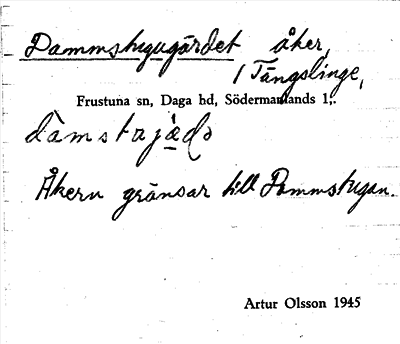 Dammstugugärdet åker,
i Tängslinge,
Frustuna sn, Daga hd, Södermanlands l:.
Åkern gränsar till Dammstugan.
Artur Olsson 1945